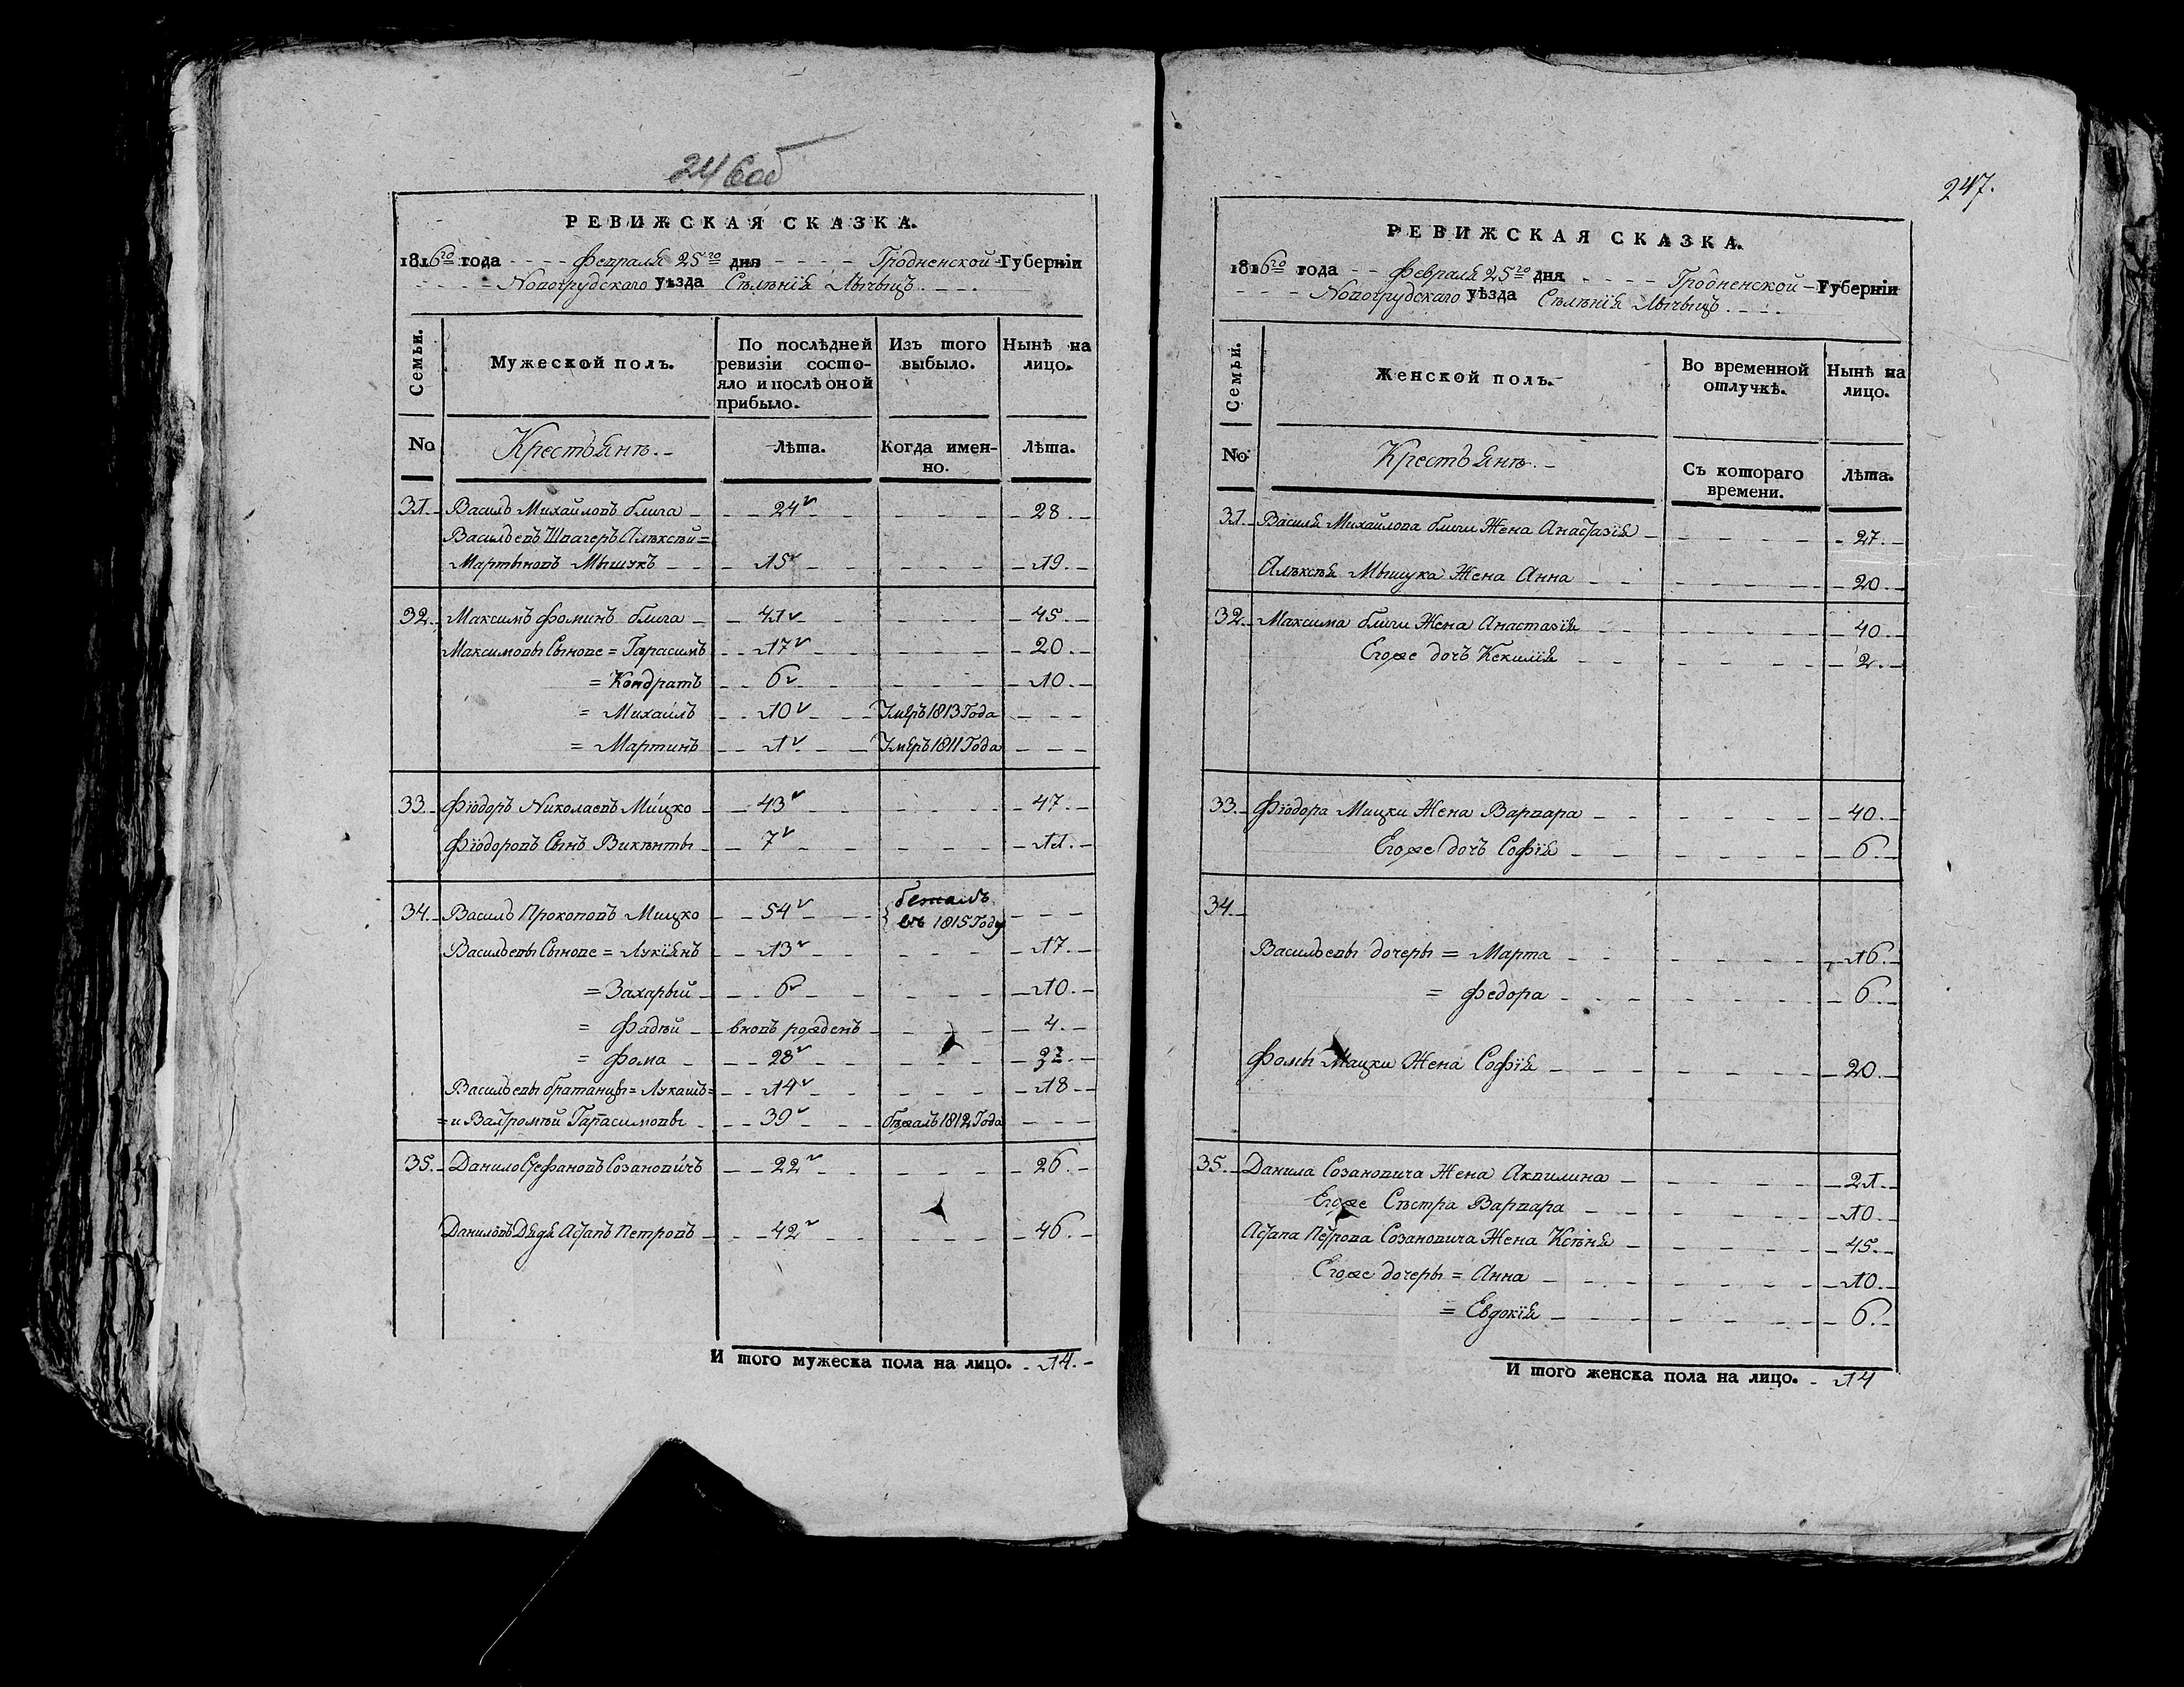 246об
РЕВИЖСКАЯ СКАЗКА.
1816го года - - - - Февраля 25го дня - - - - - Гродненской - Губерніи
- - - - Новогрудскаго уѣзда Сѣлѣнія Лычыцъ - - -
Семьи. Мужеской полъ. По послѣдней ревизіи состояло и послѣ оной прибыло. Изъ того выбыло. Нынѣ на лицо.
No Крестьянѣ. - лѣта. Когда именно. лѣта.
31. Василь Михайловъ блига 24 28
Васильевъ Швагеръ Алѣксѣй =
Мартыновъ Мышукъ 15 19
32. Максимъ Фоминъ блига 41 45
Максимовы Сынове = Гарасимъ 17 20
= Кондратъ 6 10
= Михайлъ 10 Умеръ 1813 Года
= Мартинъ 1 Умеръ 1811 Года
33. Фіодоръ Николаевъ Мицко 43 47
Фіодоровъ Сынъ Викѣнты 7 11
34. Василь Прокоповъ Мицко 54 бежалъ въ 1815 Году
Васильевы Сынове = Лукіянъ 13 17
= Захарый 6 10
= Фадѣй вновь рожденъ 4
= Фома 28 32
Васильевы братанцы = Лукашъ = 14 18
= и Валтромѣй Гарасимовы 39 бѣжалъ 1812 Года
35. Данило Стефановъ Созановичъ 22 26
Даниловъ Дядя Астапъ Петровъ 42 46
И того мужеска пола на лицо. 14.
247.
РЕВИЖСКАЯ СКАЗКА.
1816го года - - Февраля 25го дня - - - - Гродненской - Губерніи
- - - Новогрудскаго уѣзда Сѣлѣнія Лычыцъ - - - -
Семьи. Женской полъ. Во временной отлучкѣ. Нынѣ на лицо.
No Крестьянѣ. - Съ котораго времени. лѣта.
31. Василя Михайлова блиги Жена Анастазія 27.
Алѣксѣя Мышука Жена Анна 20
32. Максима блиги Жена Анастазія 40
Егоже дочъ Кекилія 2.
33. Фіодора Мицки Жена Варвара 40.
Егоже дочъ Софія 6.
34.
Васильевы дочеры = Марта 16
= Федора 6.
Фомы Мицки Жена Софія 20
35. Данила Созановича Жена Аквилина 21.
Егоже Сѣстра Варвара 10.
Астапа Петрова Созановича Жена Ксѣня 45.
Егоже дочеры = Анна 10.
= Евдокія 6.
И того женска пола на лицо. 14